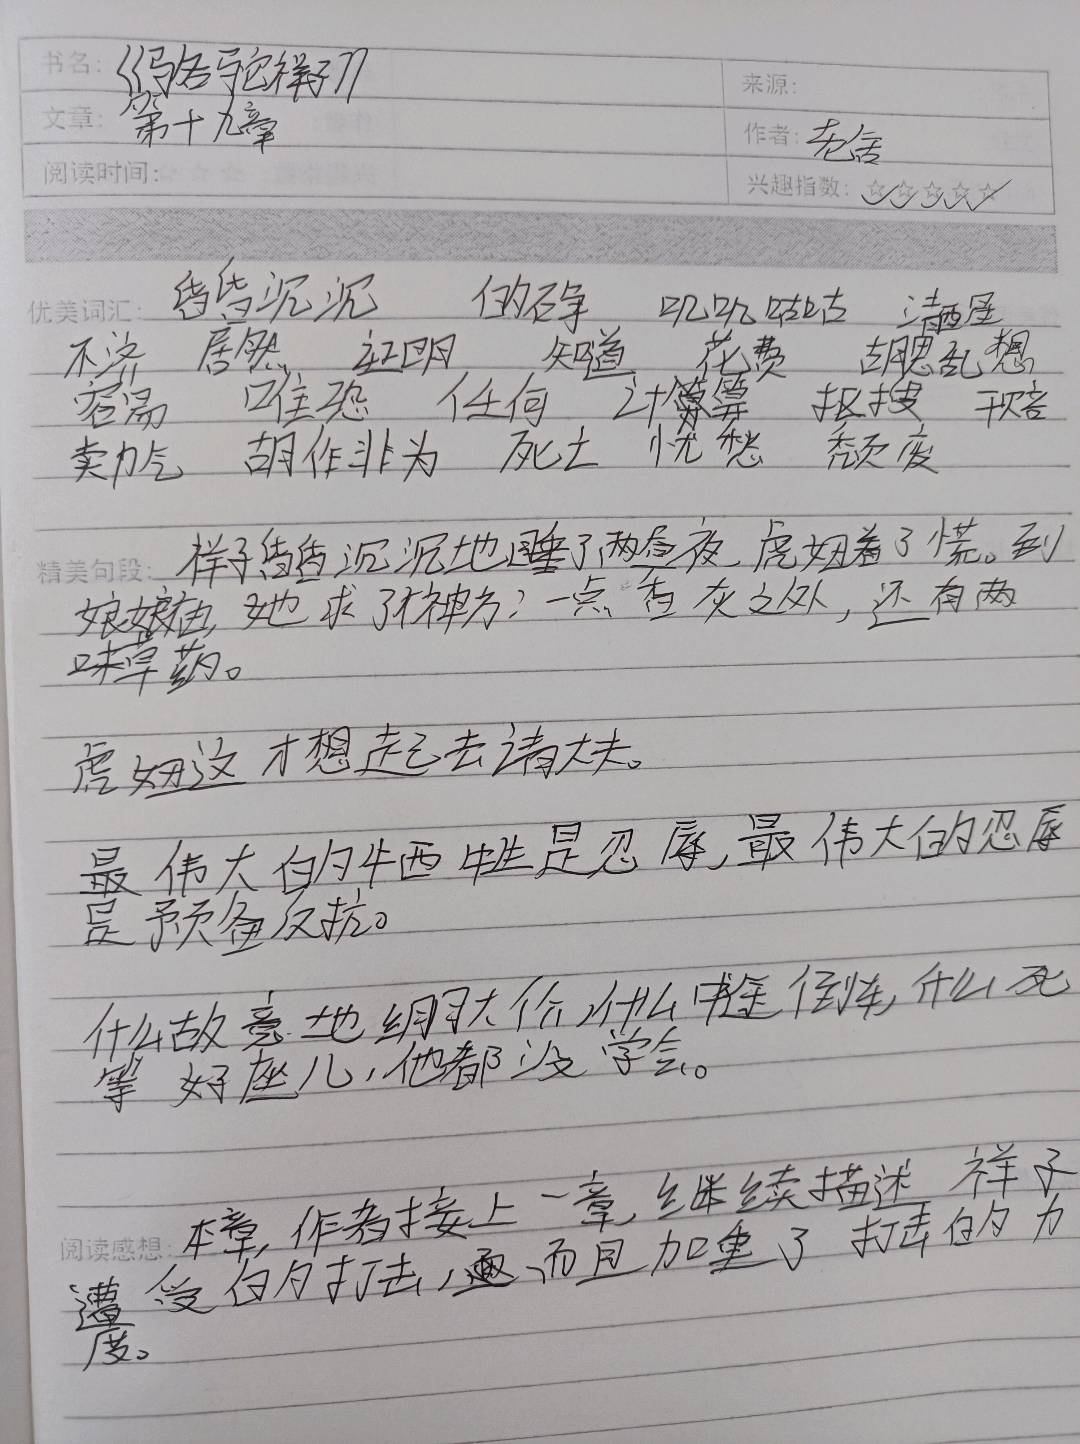 书名：《骆驼祥子》
来源：
文章：第十九章
作者：老舍
阅读时间：
兴趣指数：☆☆☆☆☆
优美词汇：昏昏沉沉 的确 叽叽咕咕 清醒
不济 居然 证明 知道 花费 胡思乱想
容易 唯恐 任何 计算 抠搜 干赔
卖力气 胡作非为 死士 忧愁 颓废
精美句段：祥子昏昏沉沉地睡了两昼夜，虎妞着了慌。到
娘娘庙，她求了个神方：一点香灰之外，还有两
味草药。
虎妞这才想起去请大夫。
最伟大的牺牲是忍辱，最伟大的忍辱
是预备反抗。
什么故意地绷大价，什么中途倒车，什么死
等好座儿，他都没学会。
阅读感想：本章，作者接上一章，继续描述祥子
遭受的打击，而且加重了打击的力
度。